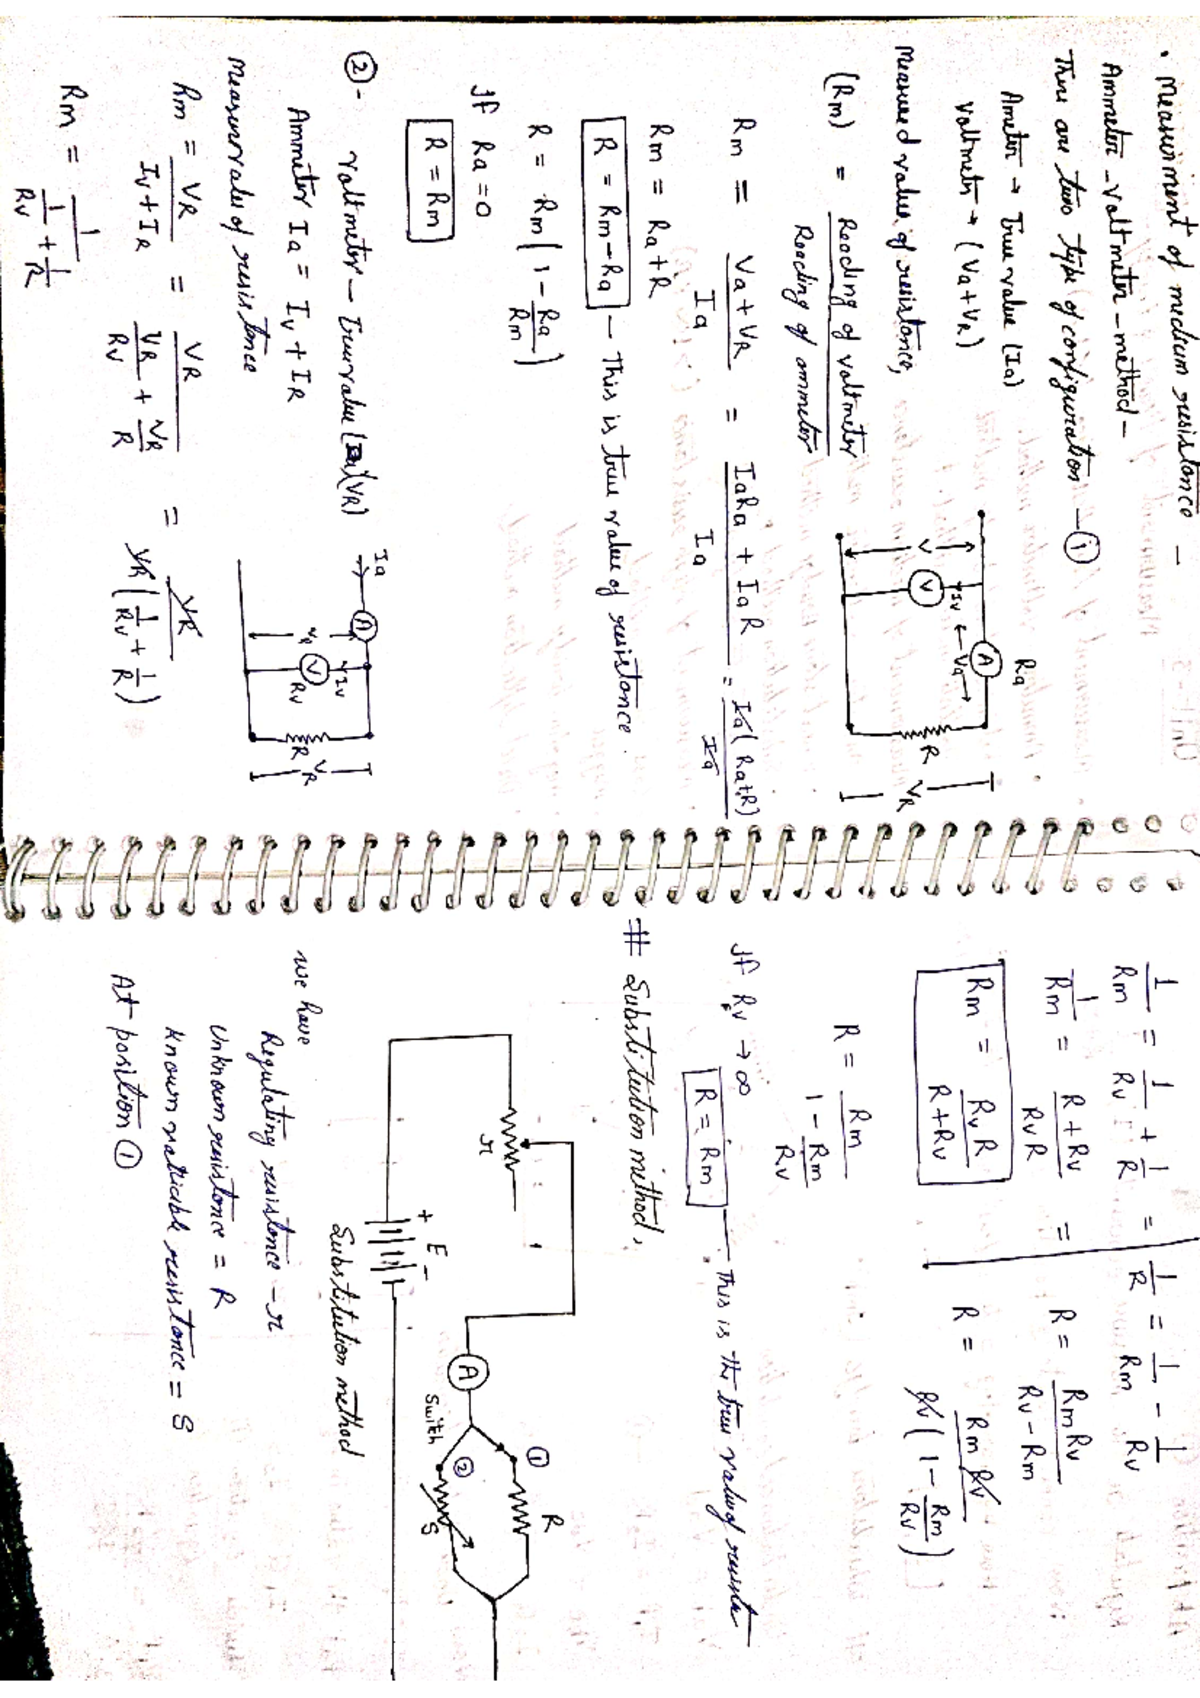 • Measurinment of medium resistance —
Ammeter-Voltmeter-method-
There are two type of configuration - ①
Ameter → True value (Ia)
Voltmeter → (Va+VR)
Measured value of resistance,
(Rm) = Reading of voltmeter / Reading of ammeter
V
V
Iv
← Va →
A
Ra
R
VR
Rm = Va+VR / Ia = IaRa + IaR / Ia = Ia(Ra+R) / Ia
Rm = Ra+R
R = Rm-Ra — This is true value of resistance.
R = Rm(1 - Ra/Rm)
If Ra=0
R = Rm
②- Voltmeter - True value (VR)
Ammeter Ia = Iv + IR
Measurvalue of resistance
Ia
A
VR
V
Iv
Rv
R
VR
Rm = VR / Iv+IR = VR / (VR/Rv + VR/R) = VR / VR(1/Rv + 1/R)
Rm = 1 / (1/Rv + 1/R)
1/Rm = 1/Rv + 1/R = 1/R = 1/Rm - 1/Rv
1/Rm = R+Rv / RvR = R = RmRv / Rv-Rm
Rm = RvR / R+Rv
R = Rm Rv / Rv(1 - Rm/Rv)
R = Rm / 1 - Rm/Rv
If Rv → ∞
R = Rm — This is the true value of resista
# Substitution method,
r
+ E -
A
Switch
①
②
R
S
Substitution method
we have
Regulating resistance - r
Unknown resistance = R
Known variable resistance = S
At position ①